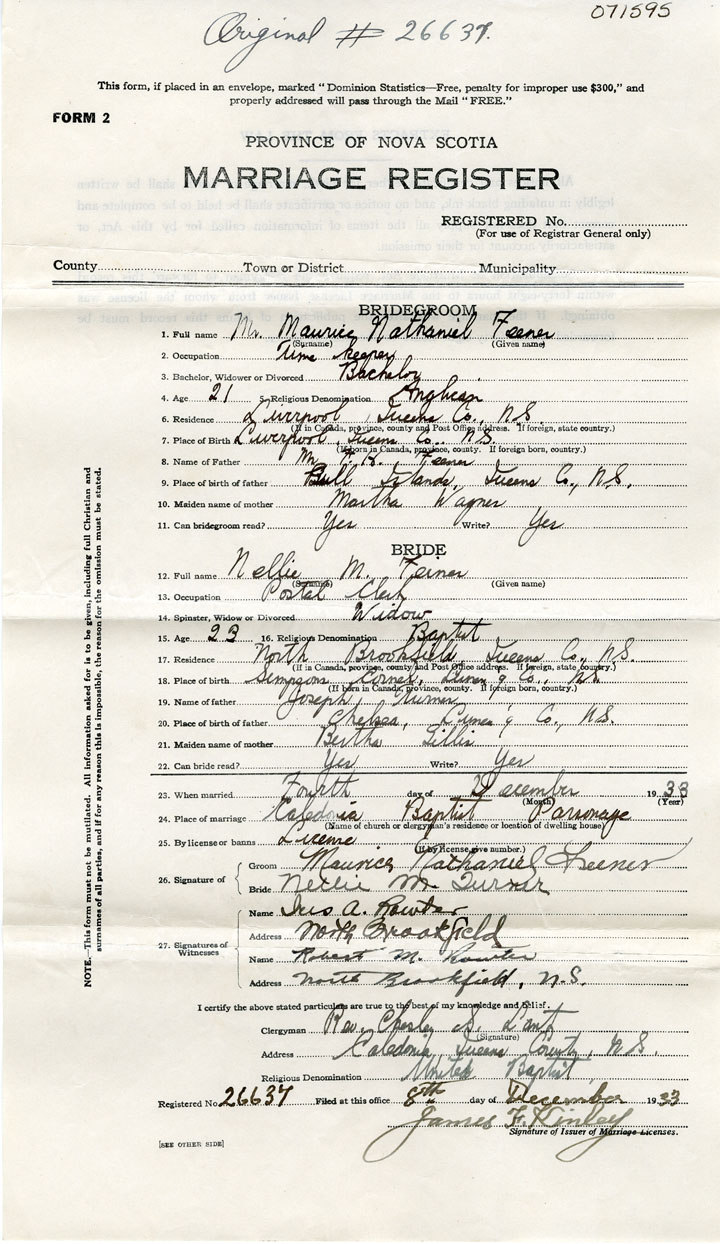 071595
Original # 26637.
This form, if placed in an envelope, marked "Dominion Statistics—Free, penalty for improper use $300," and
properly addressed will pass through the Mail "FREE."
FORM 2
PROVINCE OF NOVA SCOTIA
MARRIAGE REGISTER
REGISTERED No.
(For use of Registrar General only)
County Town or District Municipality
BRIDEGROOM
1. Full name Mr. Maurice Nathaniel Feener
(Surname) (Given name)
2. Occupation Time keeper
3. Bachelor, Widower or Divorced Bachelor
4. Age 21 5. Religious Denomination Anglican
6. Residence Liverpool, Queens Co., N.S.
(If in Canada, province, county and Post Office address. If foreign, state country.)
7. Place of Birth Liverpool, Queens Co., N.S.
(If born in Canada, province, county. If foreign born, country.)
8. Name of Father Mr. K. Feener
9. Place of birth of father Bull Islands, Queens Co., N.S.
10. Maiden name of mother Martha Wagner
11. Can bridegroom read? Yes Write? Yes
BRIDE
12. Full name Nellie M.
(Surname) (Given name)
13. Occupation Postal Clerk
14. Spinster, Widow or Divorced Widow
15. Age 23 16. Religious Denomination Baptist
17. Residence North Brookfield Queens Co., N.S.
(If in Canada, province, county and Post Office address. If foreign, state country.)
18. Place of birth Simpsons Corner, Lunen'g Co., N.S.
(If born in Canada, province, county. If foreign born, country.)
19. Name of father Joseph Turner
20. Place of birth of father Chelsea, Lunen'g Co., N.S.
21. Maiden name of mother Bertha
22. Can bride read? Yes Write? Yes
23. When married Fourth day of December 1933
(Month) (Year)
24. Place of marriage Caledonia Baptist Parsonage
(Name of church or clergyman's residence or location of dwelling house)
25. By license or banns License
(If by license, give number.)
26. Signature of
Groom Maurice Nathaniel Feener
Bride Nellie M. Turner
27. Signatures of Witnesses
Name A.
Address North Brookfield
Name Robert M.
Address North Brookfield, N.S.
I certify the above stated particulars are true to the best of my knowledge and belief.
Clergyman Rev. Chesley S.
(Signature)
Address Caledonia, Queens County, N.S.
Religious Denomination United Baptist
Registered No. 26637 Filed at this office 8th day of December 1933
James F. Kinley
Signature of Issuer of Marriage Licenses.
[SEE OTHER SIDE]
NOTE.—This form must not be mutilated. All information asked for is to be given, including full Christian and
surnames of all parties, and if for any reason this is impossible, the reason for the omission must be stated.